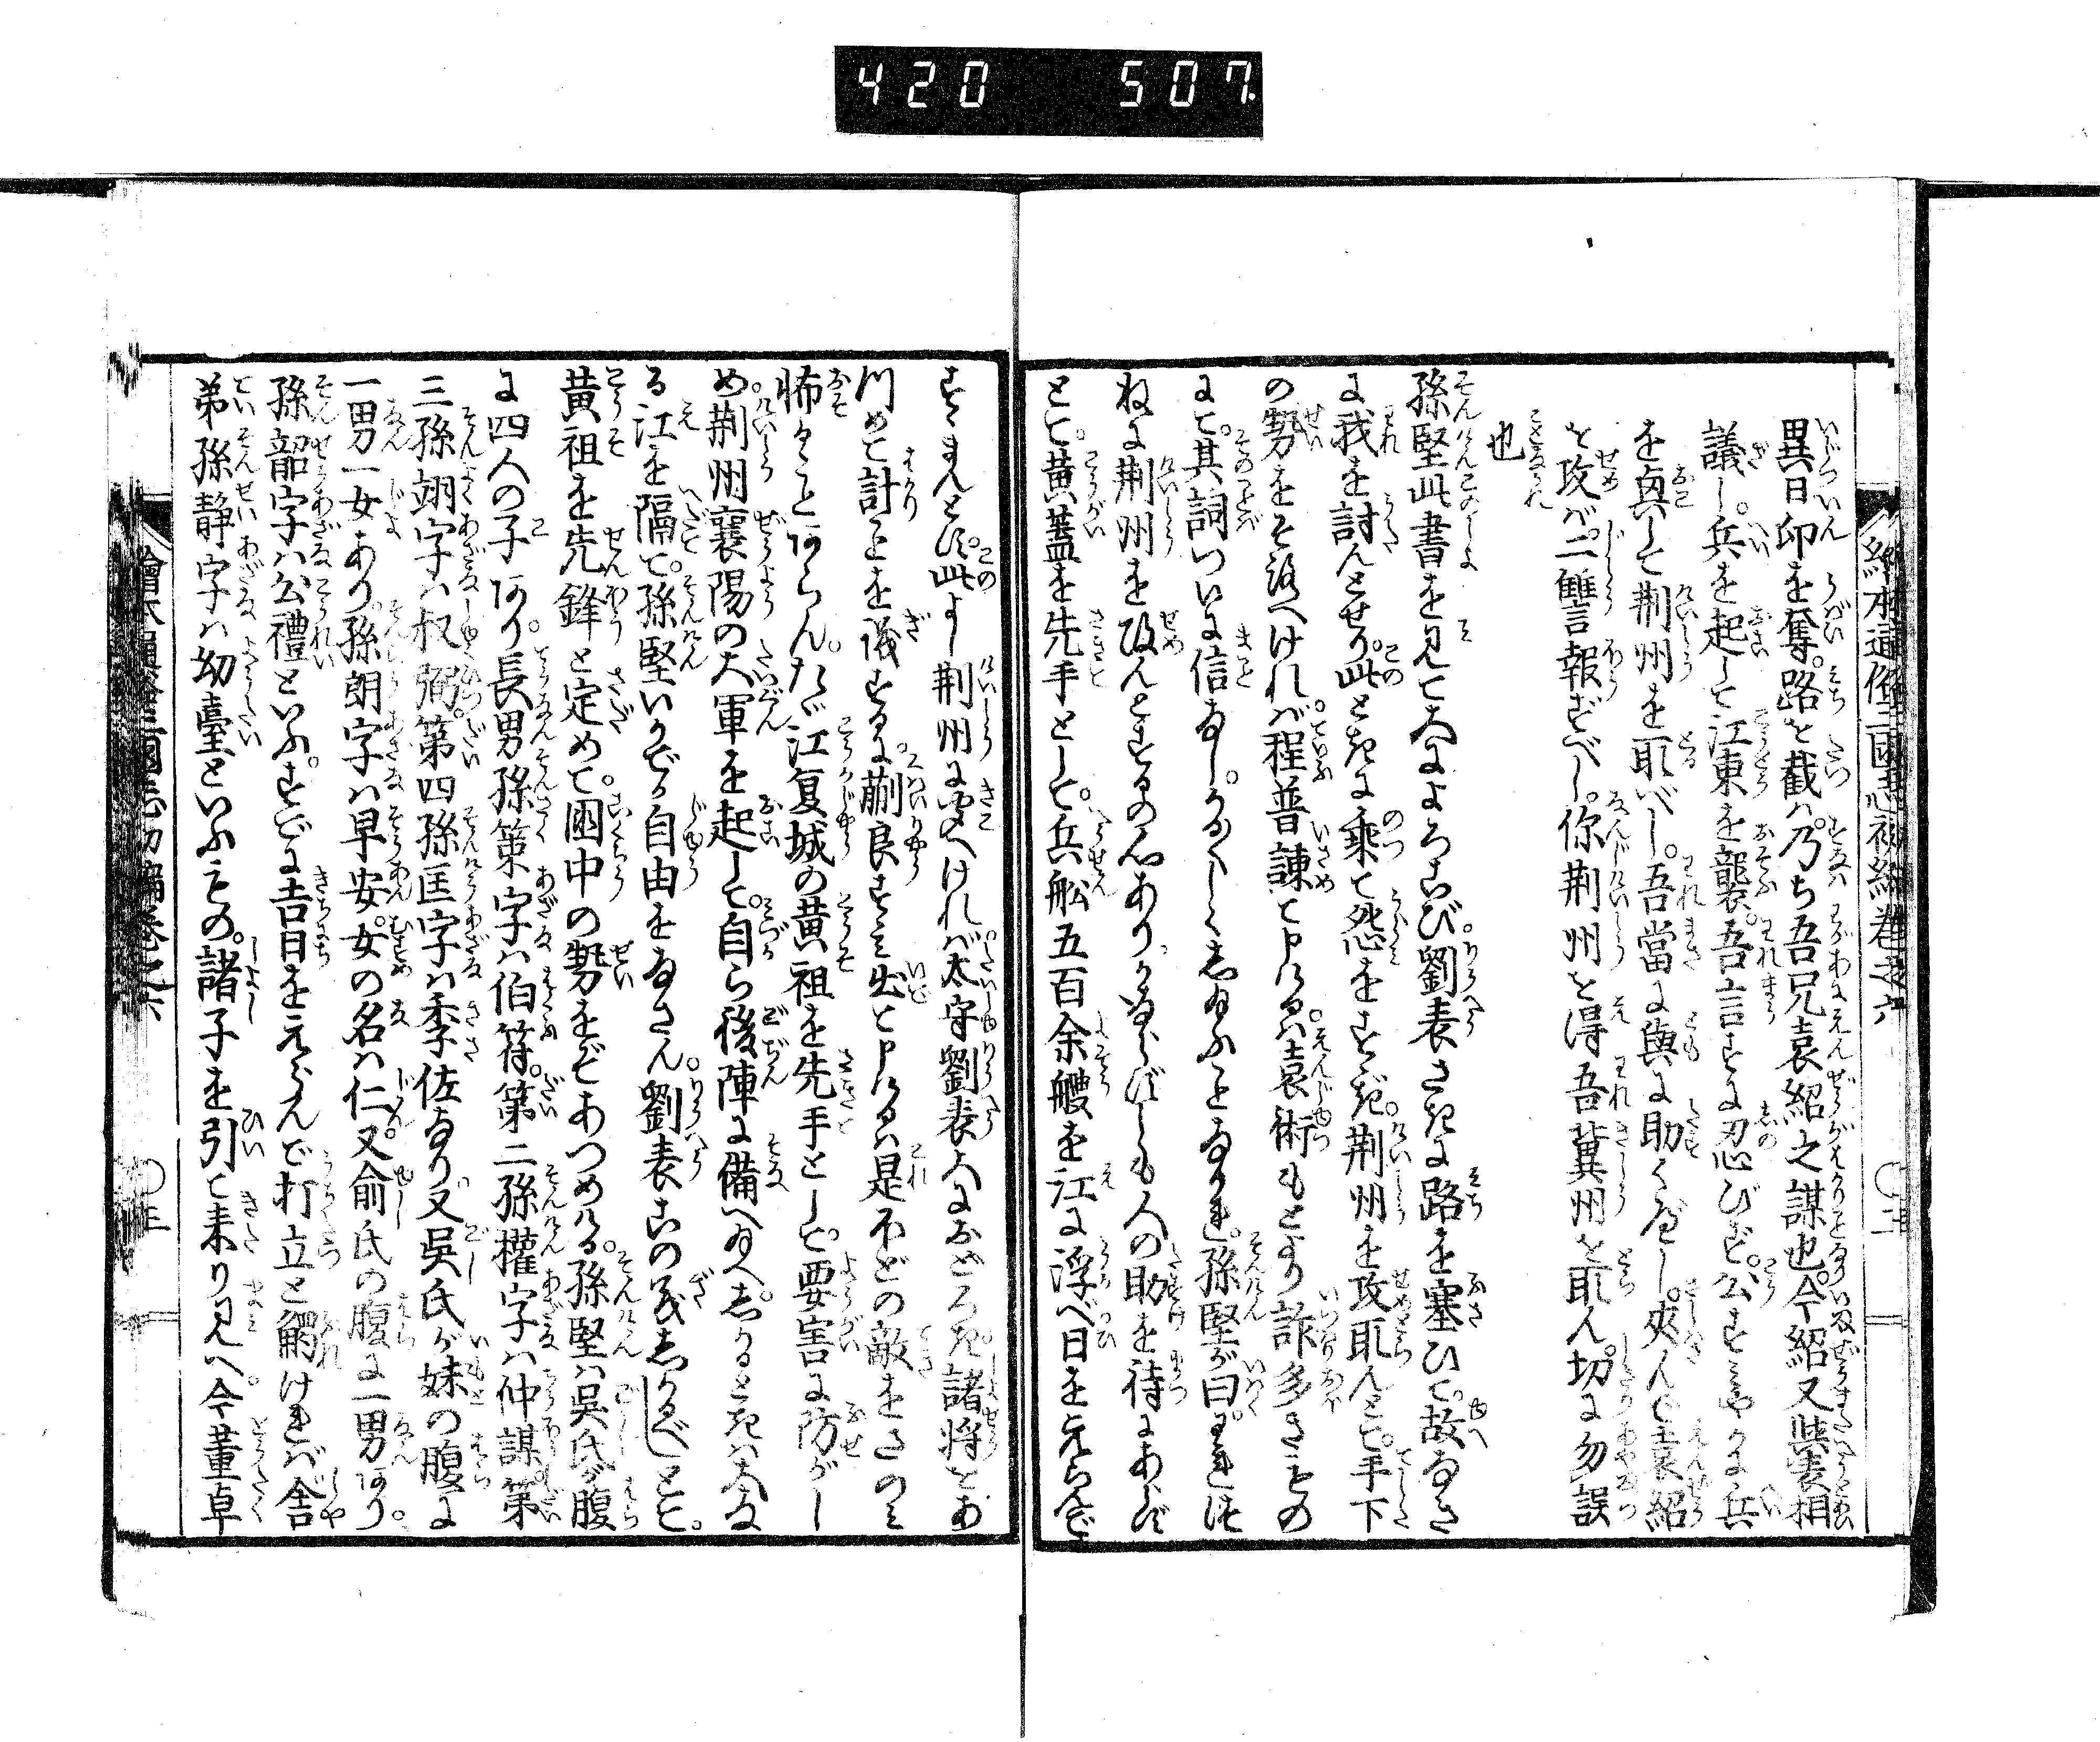 420 507
繪本通俗三國志初編卷之六 〇二
異日印を奪。路を截ハ。乃ち吾兄袁紹之謀也。今紹又与表相
議し。兵を起して江東を襲。吾言すに忍びず。公すミやかに兵
を興して荆州を取べし。吾當に與に助くべし。夾んで袁紹
を攻バ。二讐言報ずべし。你荆州を得吾冀州を取ん。切に勿誤
也
孫堅此書を見て大によろこび。劉表さきに路を塞ひで。故なき
に我を討んとせり。此ときに乗て怨をすゝぎ。荆州を攻取んとて。手下
の勢をそろへけれバ。程普諫て申けるハ。袁術もとより詐多きもの
にて。其詞ついに信なし。かるかるしくあふことなかれ。孫堅が曰。われつ
ねに荆州を攻んとするの心あり。かならずしも人の助を待にあらず
とて。黄蓋を先手として。兵舩五百余艘を江に浮べ日をえらんで
すゝまんとす。此よし荆州に聞へけれバ。太守劉表大におどろき。諸将をあ
つめて計ことを議するに。蒯良すゝミ出て申けるハ。是ほどの敵をさのミ
怖ることあらん。たゞ江夏城の黄祖を先手として。要害に防がし
め。荆州襄陽の大軍を起して。自ら後陣に備へ玉へ。しかるときハ大な
る江を隔て。孫堅いかでか自由をなさん。劉表この義しかるべしとて。
黄祖を先鋒と定めて。國中の勢をぞあつめける。孫堅ハ呉氏が腹
に四人の子あり。長男孫策字ハ伯符。第二孫權字ハ仲謀。第
三孫翊字ハ叔弼。第四孫匡字ハ季佐なり。又呉氏が妹の腹に
一男一女あり。孫朗字ハ早安。女の名ハ仁。又俞氏の腹に一男あり。
孫韶字ハ公禮といふ。すでに吉日をえらんで打立と觸ければ舎
弟孫静字ハ幼臺といふもの。諸子を引て来り見へ。今董卓
繪本通俗三國志初編卷之六 〇三